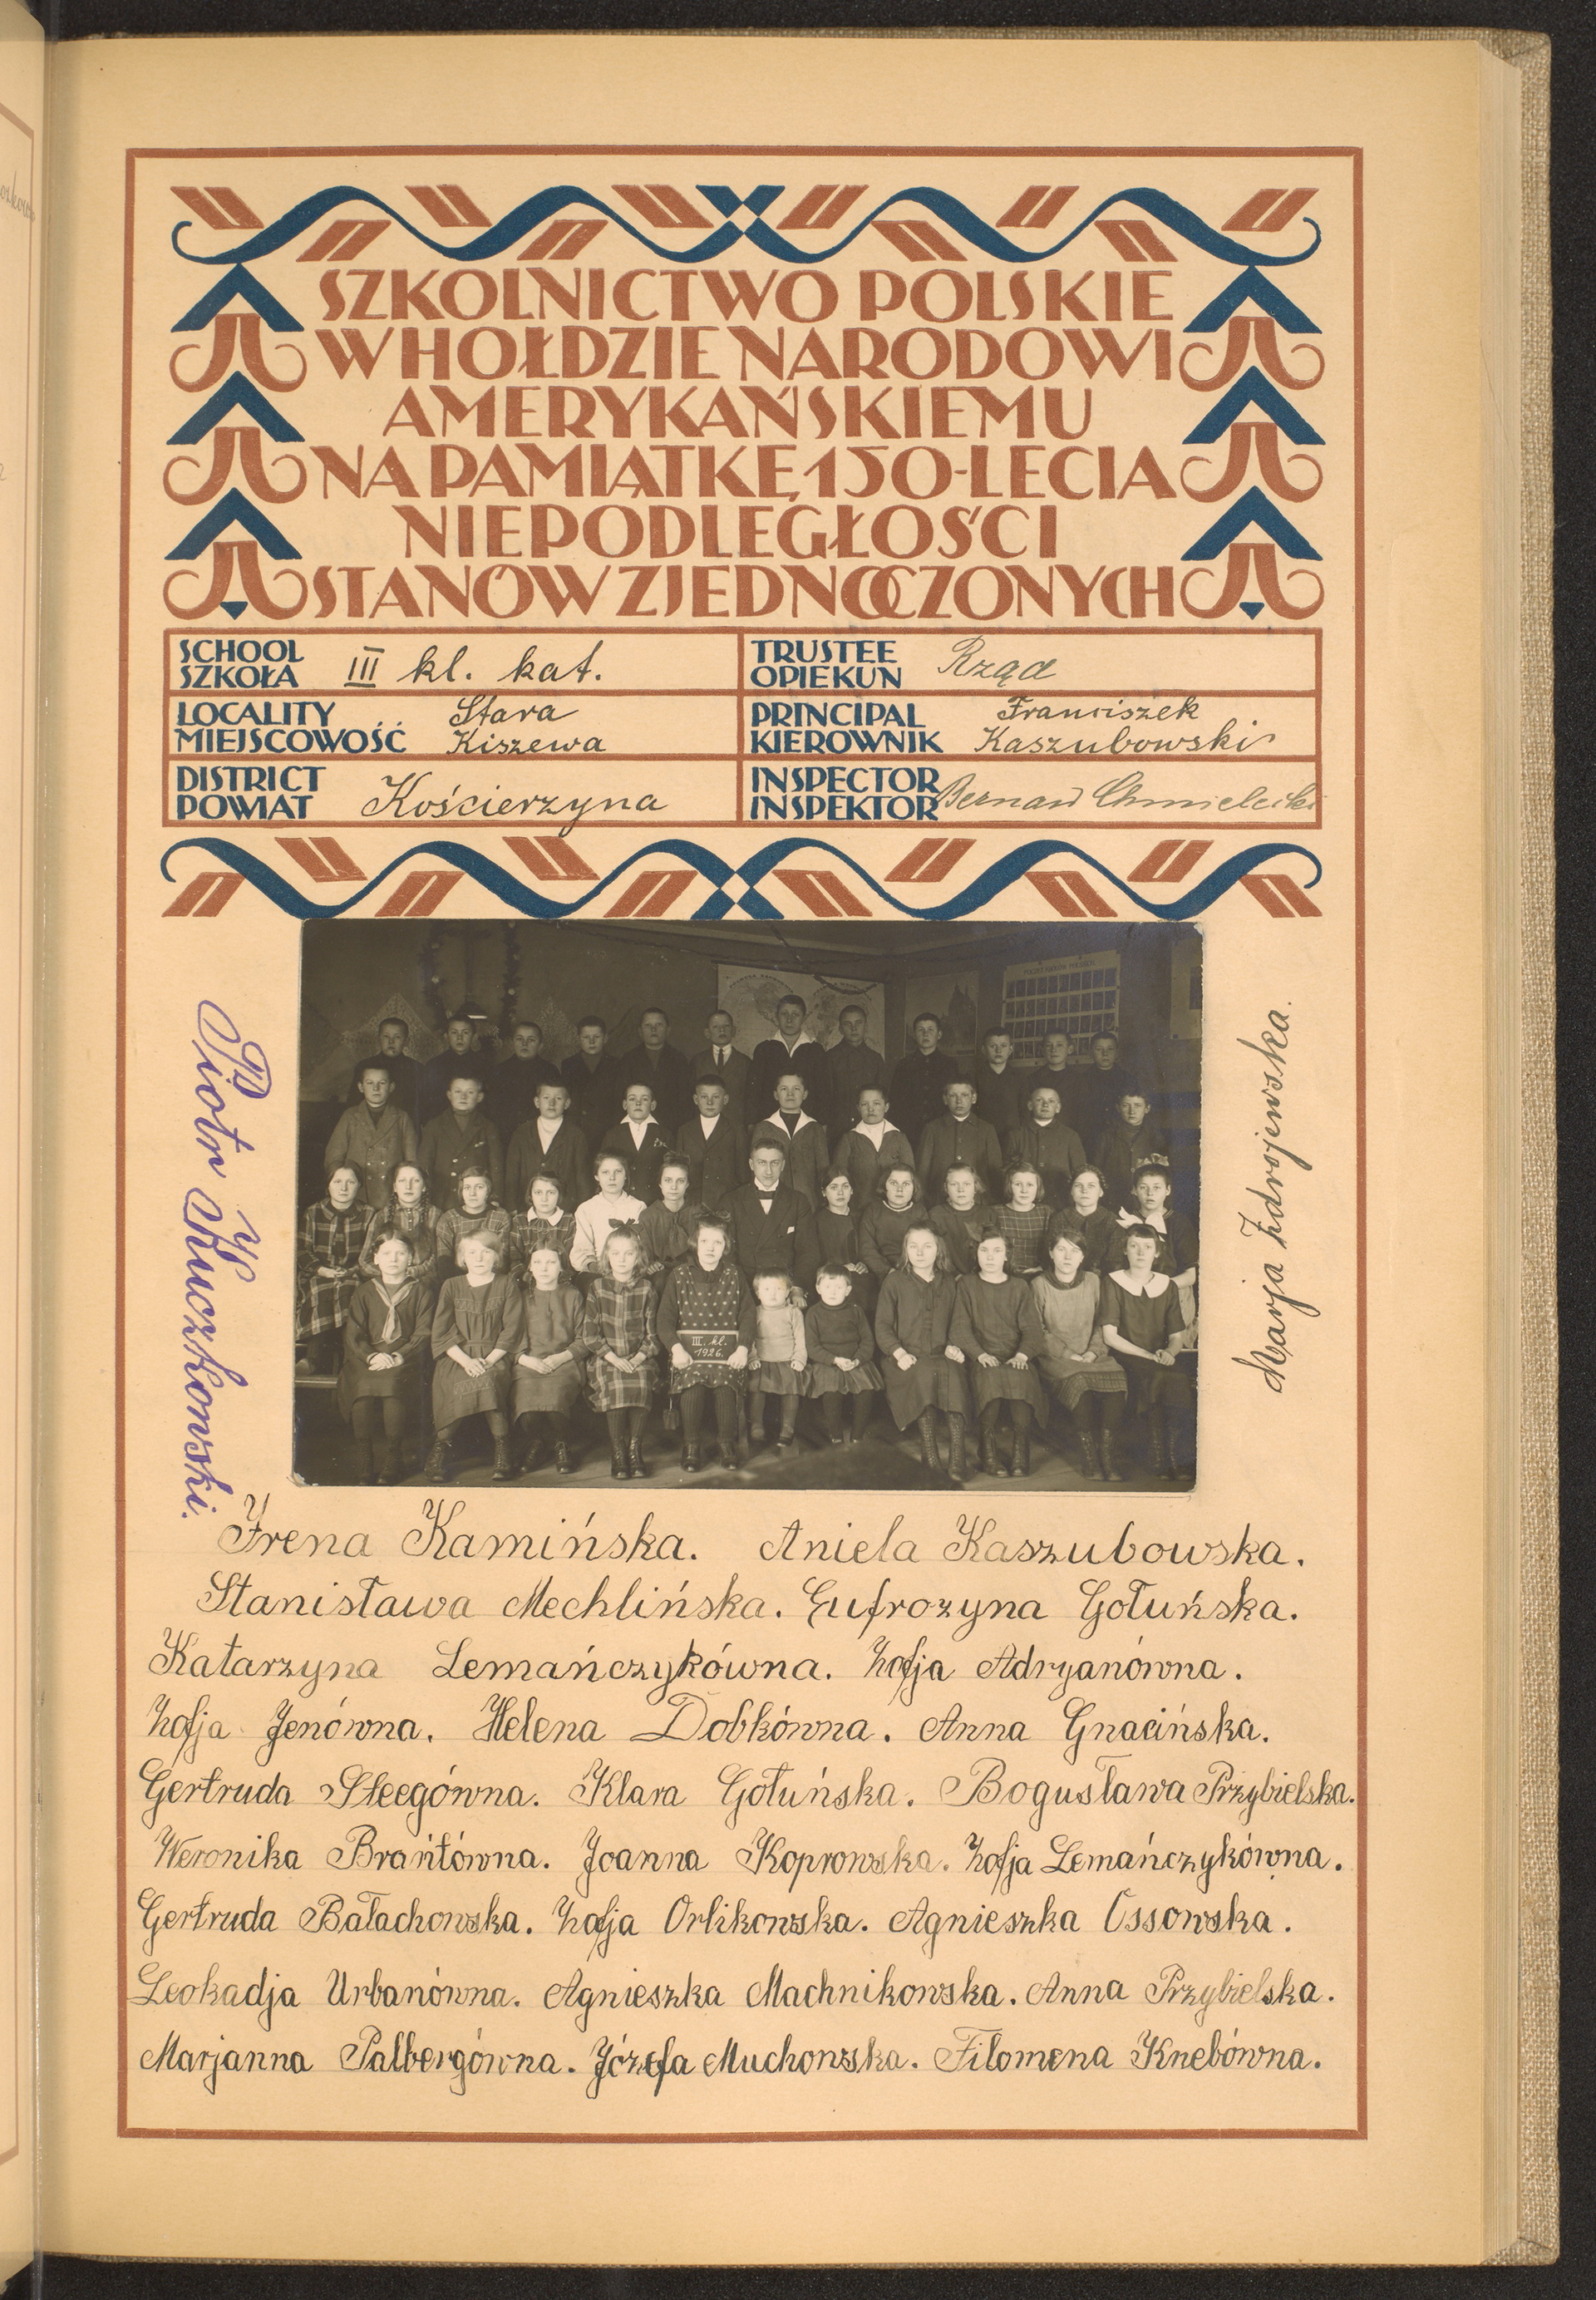 SZKOLNICTWO POLSKIE
W HOŁDZIE NARODOWI
AMERYKAŃSKIEMU
NA PAMIĄTKĘ 150-LECIA
NIEPODLEGŁOŚCI
STANÓW ZJEDNOCZONYCH
SCHOOL
SZKOŁA III kl. kat.
TRUSTEE
OPIEKUN Rząd
LOCALITY Stara
MIEJSCOWOŚĆ Kiszewa
PRINCIPAL Franciszek
KIEROWNIK Kaszubowski
DISTRICT
POWIAT Kościerzyna
INSPECTOR
INSPEKTOR Bernard Chmielecki
III. kl.
1926.
Piotr Kuczkowski.
Marja Zdrojewska.
Irena Kamińska. Aniela Kaszubowska.
Stanisława Mechlińska. Eufrozyna Gołuńska.
Katarzyna Lemańczykówna. Zofja Adryanówna.
Zofja Jenówna. Helena Dobkówna. Anna Gnacińska.
Gertruda Steegówna. Klara Gołuńska. Bogusława Przybielska.
Weronika Brańtówna. Joanna Koprowska. Zofja Lemańczykówna.
Gertruda Bałachowska. Zofja Orlikowska. Agnieszka Ossowska.
Leokadja Urbanówna. Agnieszka Machnikowska. Anna Przybielska.
Marjanna Palbergówna. Józefa Muchowska. Filomena Knebówna.